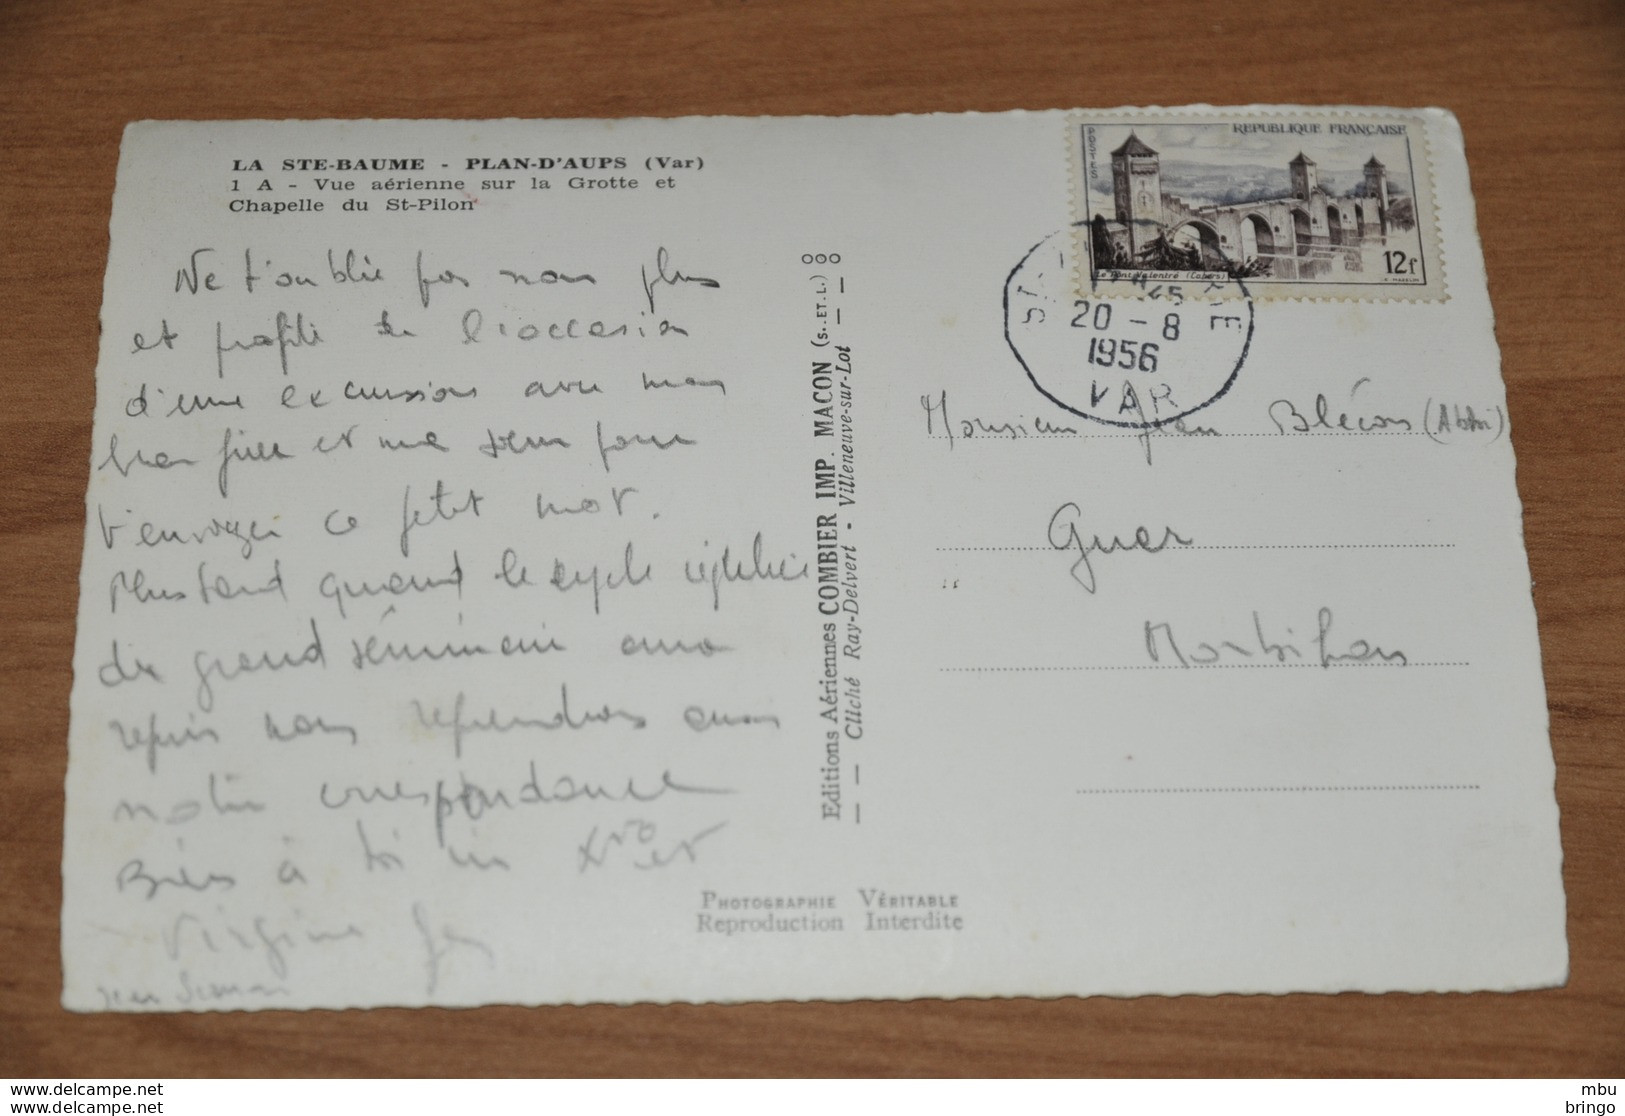 LA STE-BAUME - PLAN-D'AUPS (Var)
1 A - Vue aérienne sur la Grotte et
Chapelle du St-Pilon
Ne t'oublie pas non plus
et profite de l'occasion
d'une excursion avec mon
frère et ma soeur pour
t'envoyer ce petit mot.
Plus tard quand le cycle régulier
du grand séminaire aura
repris nous reprendrons aussi
notre correspondance
Bien à toi in Xto et
Virgine
Editions Aériennes COMBIER IMP. MACON (S.E.T.L.) ooo
— — Cliché Ray-Delvert - Villeneuve-sur-Lot — —
PHOTOGRAPHIE VÉRITABLE
Reproduction Interdite
REPUBLIQUE FRANÇAISE
POSTES
Le Pont Valentré (Cahors)
12f
20 - 8
1956
VAR
Monsieur Jean Blécon (Abbé)
Guer
Morbihan
delcampe.net
mbu
bringo